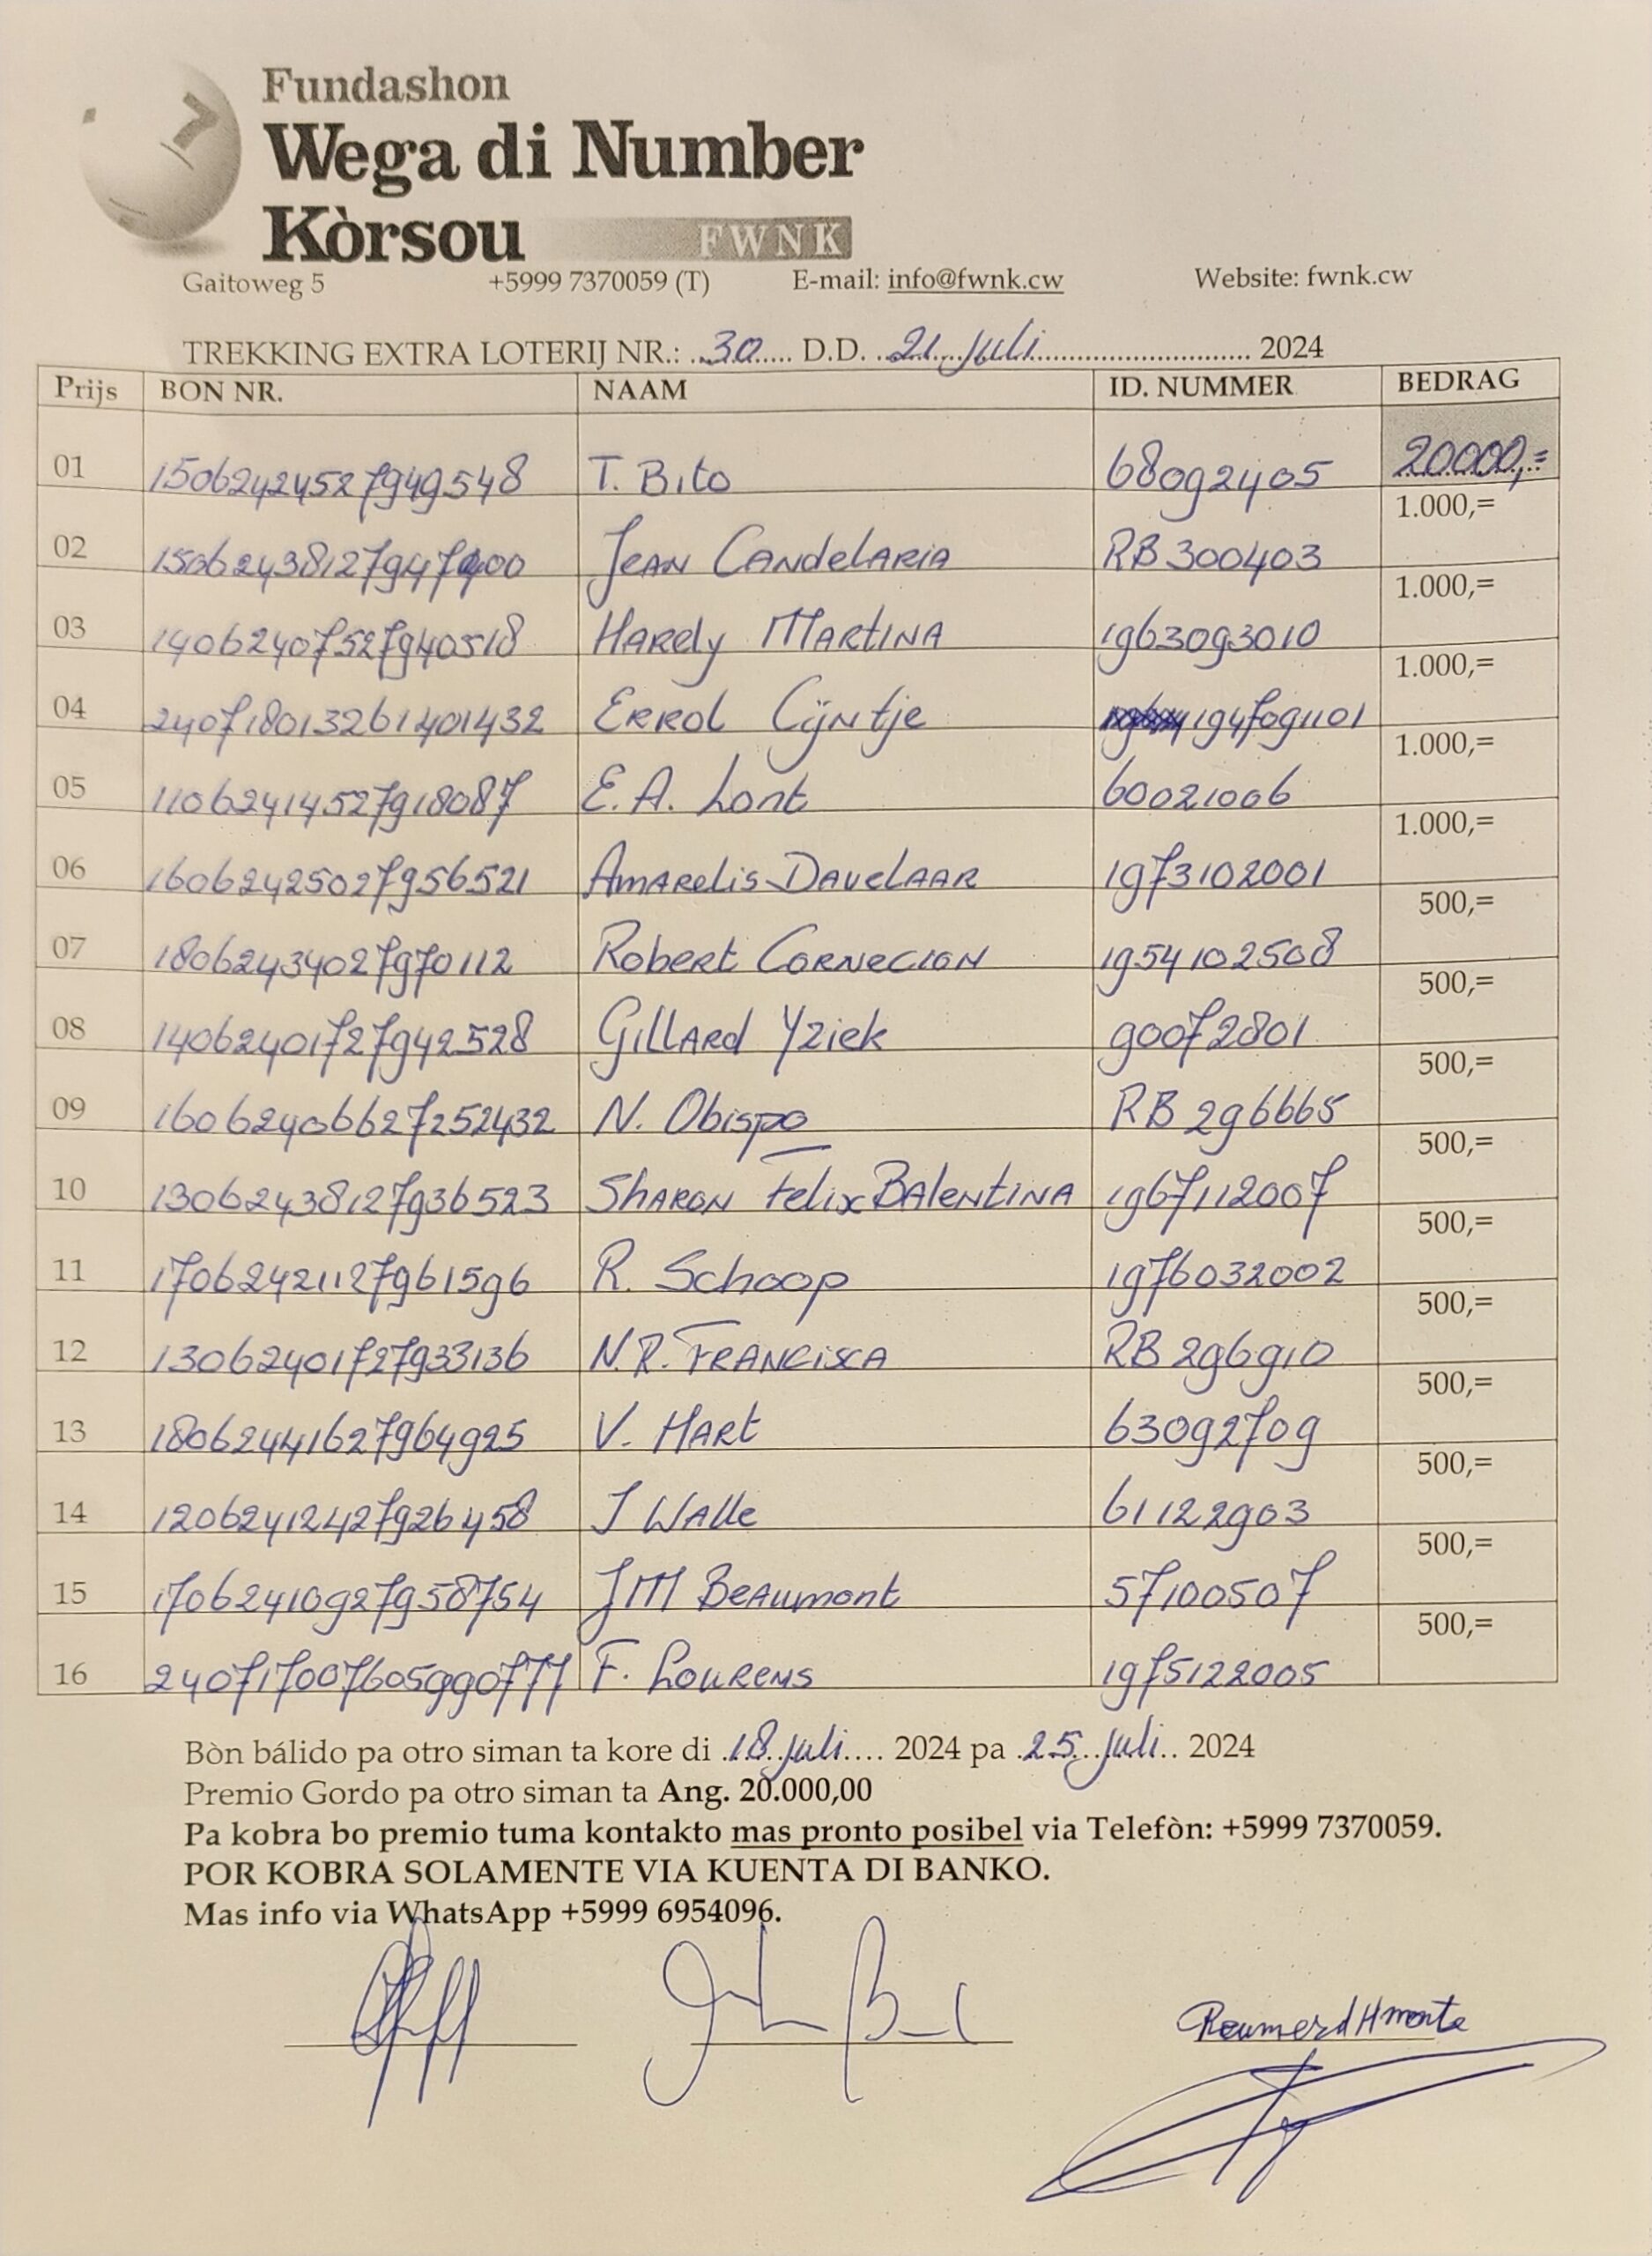 Fundashon
Wega di Number
Kòrsou FWNK
Gaitoweg 5 +5999 7370059 (T) E-mail: info@fwnk.cw Website: fwnk.cw
TREKKING EXTRA LOTERIJ NR.: ..30..... D.D. ..21..Juli.......................................... 2024
Prijs BON NR. NAAM ID. NUMMER BEDRAG
01 15062424527949548 T. Bito 68092405 20000,=
02 Jean Candelaria RB 300403 1.000,=
03 14062407527940518 Harely Martina 1963093010 1.000,=
04 240718013261401432 Errol Cijntje 1947091101 1.000,=
05 11062414527918087 E.A. Lont 60021006 1.000,=
06 16062425027956521 Amarelis Davelaar 1973102001 1.000,=
07 18062434027970112 Robert Cornecion 1954102508 500,=
08 14062401727942528 Gillard Yziek 90072801 500,=
09 16062406627252432 N. Obispo RB 296665 500,=
10 13062438127936523 Sharon Felix Balentina 1967112007 500,=
11 17062421127961596 R. Schoop 1976032002 500,=
12 13062401727933136 N.R. Francisca RB 296910 500,=
13 18062441627964925 V. Hart 63092709 500,=
14 12062412427926458 J Walle 61122903 500,=
15 17062410927958754 JM Beaumont 57100507 500,=
16 240717007605990777 F. Lourens 1975122005 500,=
Bòn bálido pa otro siman ta kore di .18.juli.... 2024 pa .25...juli.. 2024
Premio Gordo pa otro siman ta Ang. 20.000,00
Pa kobra bo premio tuma kontakto mas pronto posibel via Telefòn: +5999 7370059.
POR KOBRA SOLAMENTE VIA KUENTA DI BANKO.
Mas info via WhatsApp +5999 6954096.